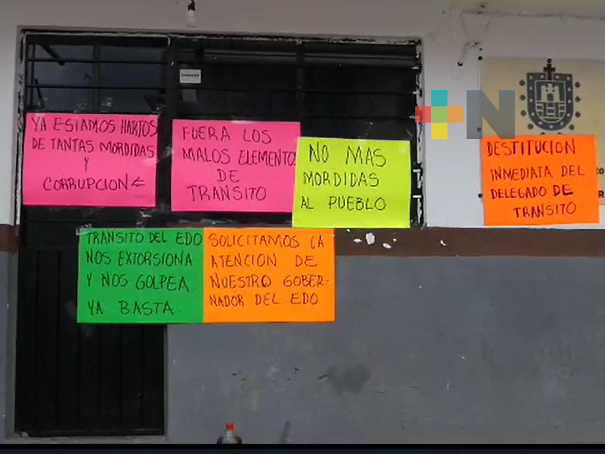 YA ESTAMOS HARTOS
DE TANTAS MORDIDAS
Y
CORRUPCION
FUERA LOS
MALOS ELEMENTO
DE
TRANSITO
NO MAS
MORDIDAS
AL PUEBLO
+N
DESTITUCION
INMEDIATA DEL
DELEGADO DE
TRANSITO
TRANSITO DEL EDO
NOS EXTORSIONA
Y NOS GOLPEA.
YA BASTA.
SOLICITAMOS LA
ATENCION DE
NUESTRO GOBER-
NADOR DEL EDO